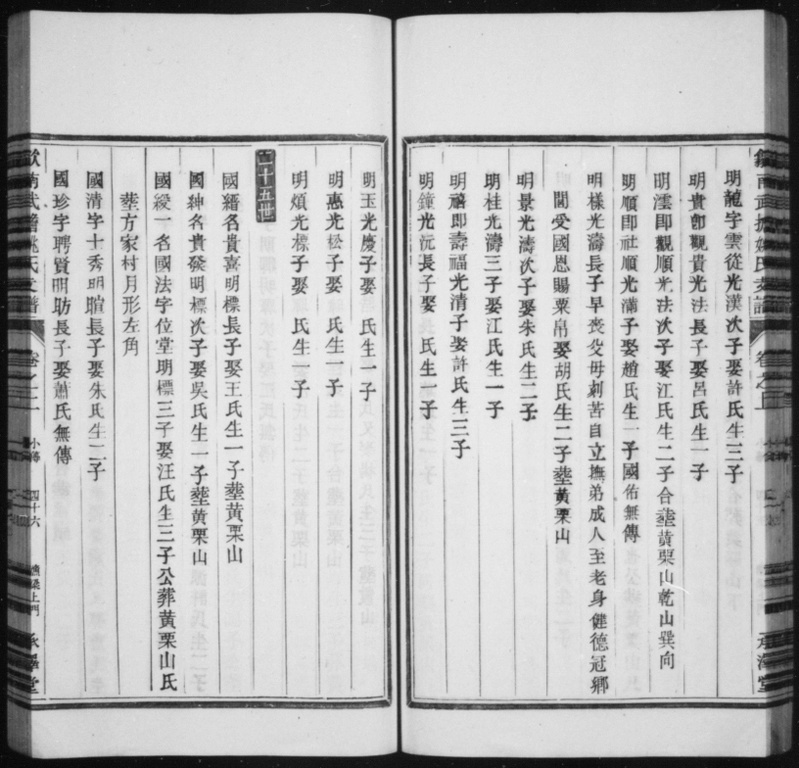 明龍字雲從光漢次子娶許氏生三子
明貴卽觀貴光法長子娶呂氏生一子
明澐卽觀順光法次子娶江氏生二子合塟黃栗山乾山巽向
明順卽社順光滿子娶趙氏生一子國佑無傳
明樣光濤長子早喪父母刻苦自立撫弟成人至老身健德冠鄉
閭受國恩賜粟帛娶胡氏生二子塟黃栗山
明景光濤次子娶朱氏生二子
明桂光濤三子娶江氏生一子
明禧卽壽福光清子娶許氏生三子
明鐘光沅長子娶 氏生一子
明玉光慶子娶 氏生一子
明惠光松子娶 氏生一子
明熕光檪子娶 氏生一子
二十五世
國縉名貴喜明標長子娶王氏生一子塟黃栗山
國紳名貴發明標次子娶吳氏生一子塟黃栗山
國綬一名國法字位堂明標三子娶汪氏生三子公葬黃栗山氏
塟方家村月形左角
國清字十秀明暄長子娶朱氏生二子
國珍字聘賢明昉長子娶蕭氏無傳
歙南武擔姚氏支譜 卷之 小傳 四十六 上門 承澤堂